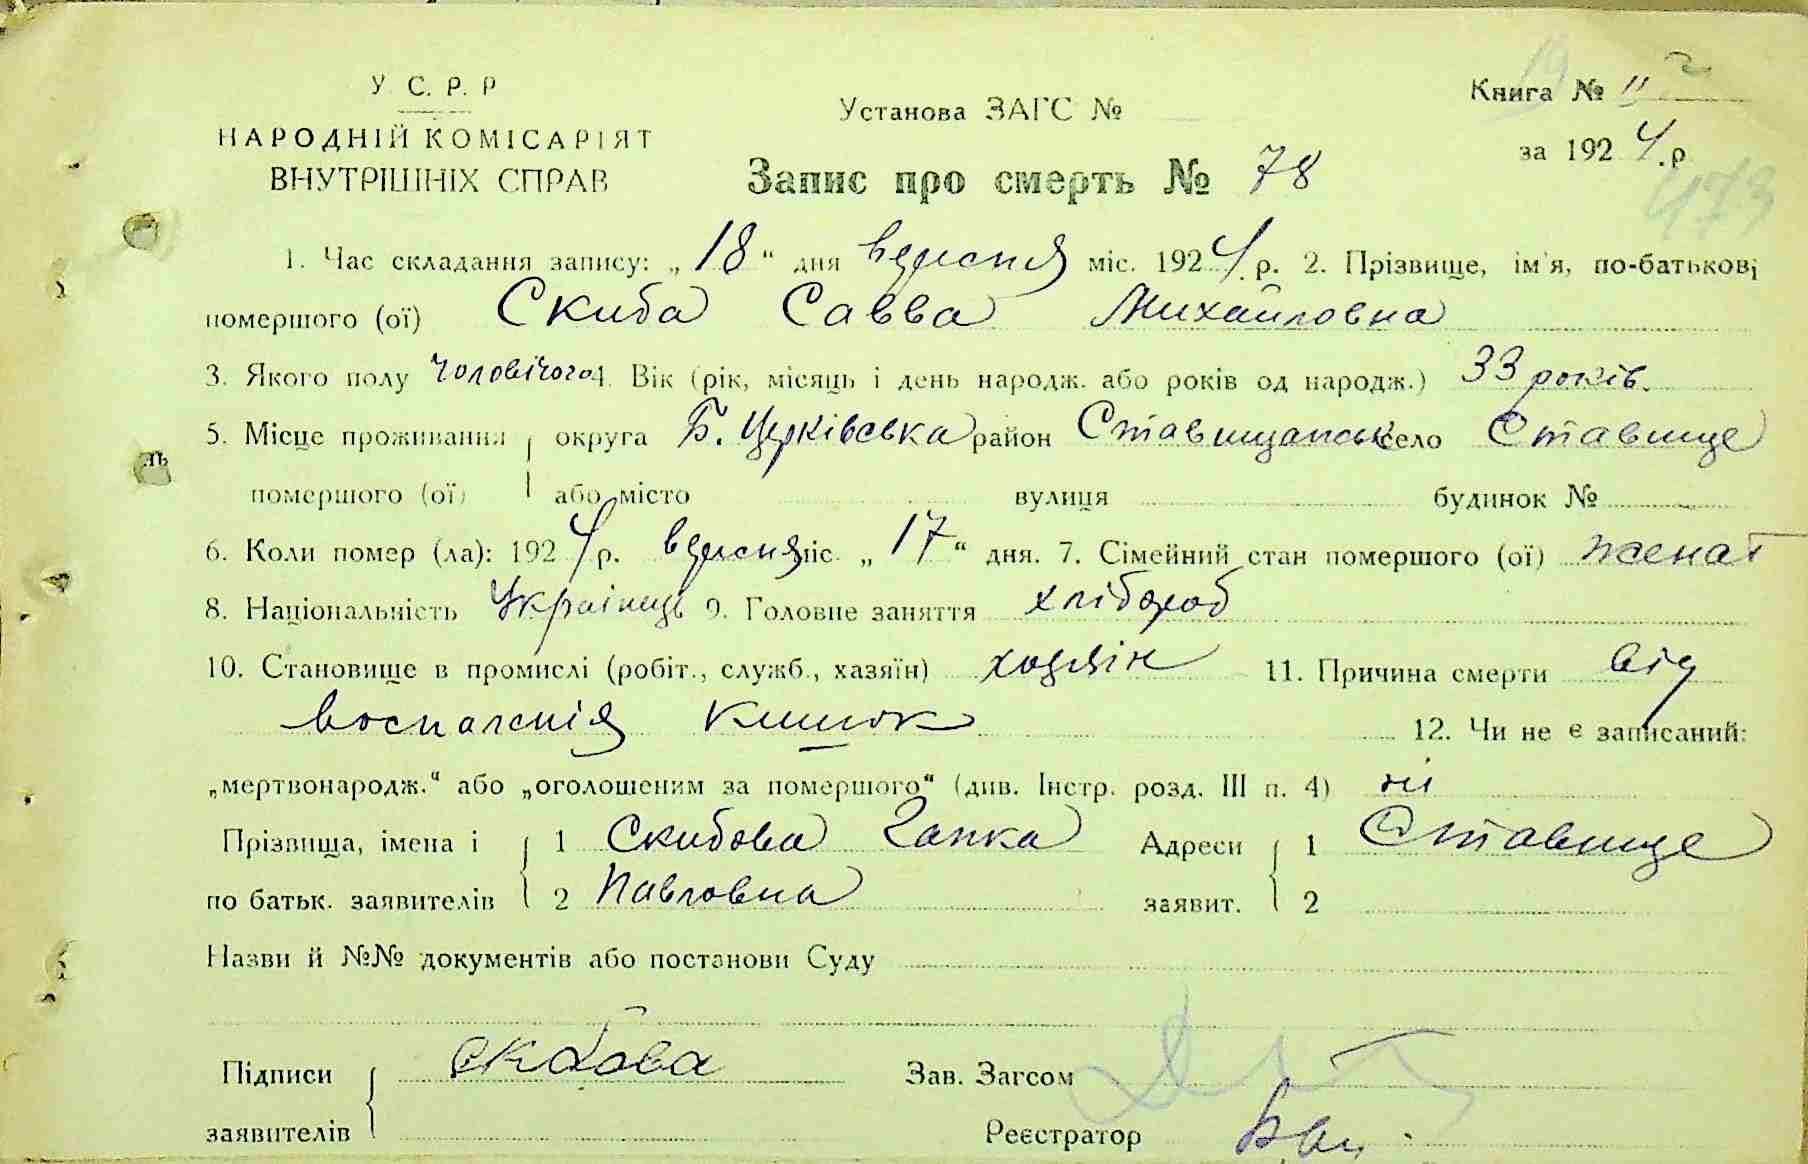 У С. Р. Р
НАРОДНІЙ КОМІСАРІЯТ
ВНУТРІШНІХ СПРАВ
Установа ЗАГС №
Книга № 11
за 1924 р
Запис про смерть № 78
473
1. Час складання запису: „18“ дня вересня міс. 1924 р. 2. Прізвище, ім'я, по-батькові
помершого (ої) Скиба Савва Михайловна
3. Якого полу чоловічого 4. Вік (рік, місяць і день народж. або років од народж.) 33 років.
5. Місце проживання округа Б. Церківська район Ставищанськ село Ставище
помершого (ої) або місто вулиця будинок №
6. Коли помер (ла): 1924 р. вересня міс. „17“ дня. 7. Сімейний стан помершого (ої) женат
8. Національність Українець 9. Головне заняття хлібороб
10. Становище в промислі (робіт., служб., хазяїн) хозяін 11. Причина смерти від
воспаленія кишок 12. Чи не є записаний:
„мертвонародж.“ або „оголошеним за помершого“ (див. Інстр. розд. III п. 4) ні
Прізвища, імена і 1 Скибова Гапка Адреси 1 Ставище
по батьк. заявителів 2 Павловна заявит. 2
Назви й №№ документів або постанови Суду
Підписи Скибова Зав. Загсом
заявителів Реєстратор